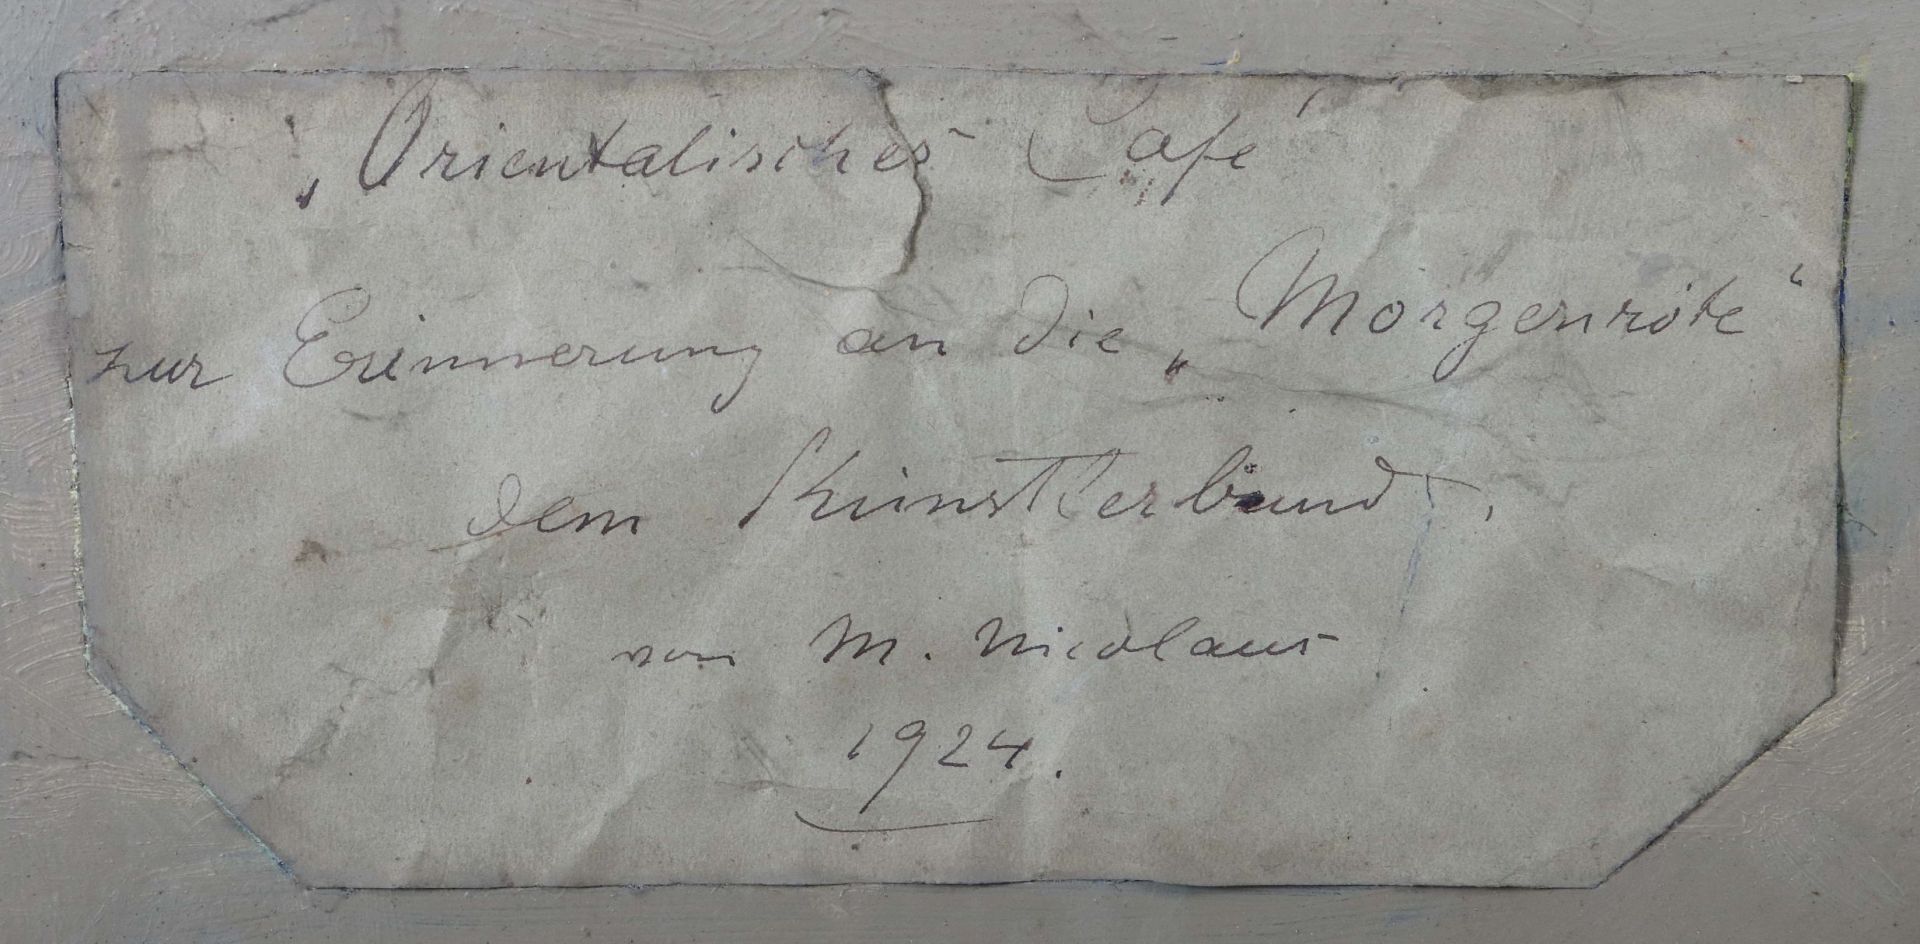 „Orientalisches Café“
zur Erinnerung an die „Morgenröte“
dem Künstlerbund.
von M. Nicolaus
1924.